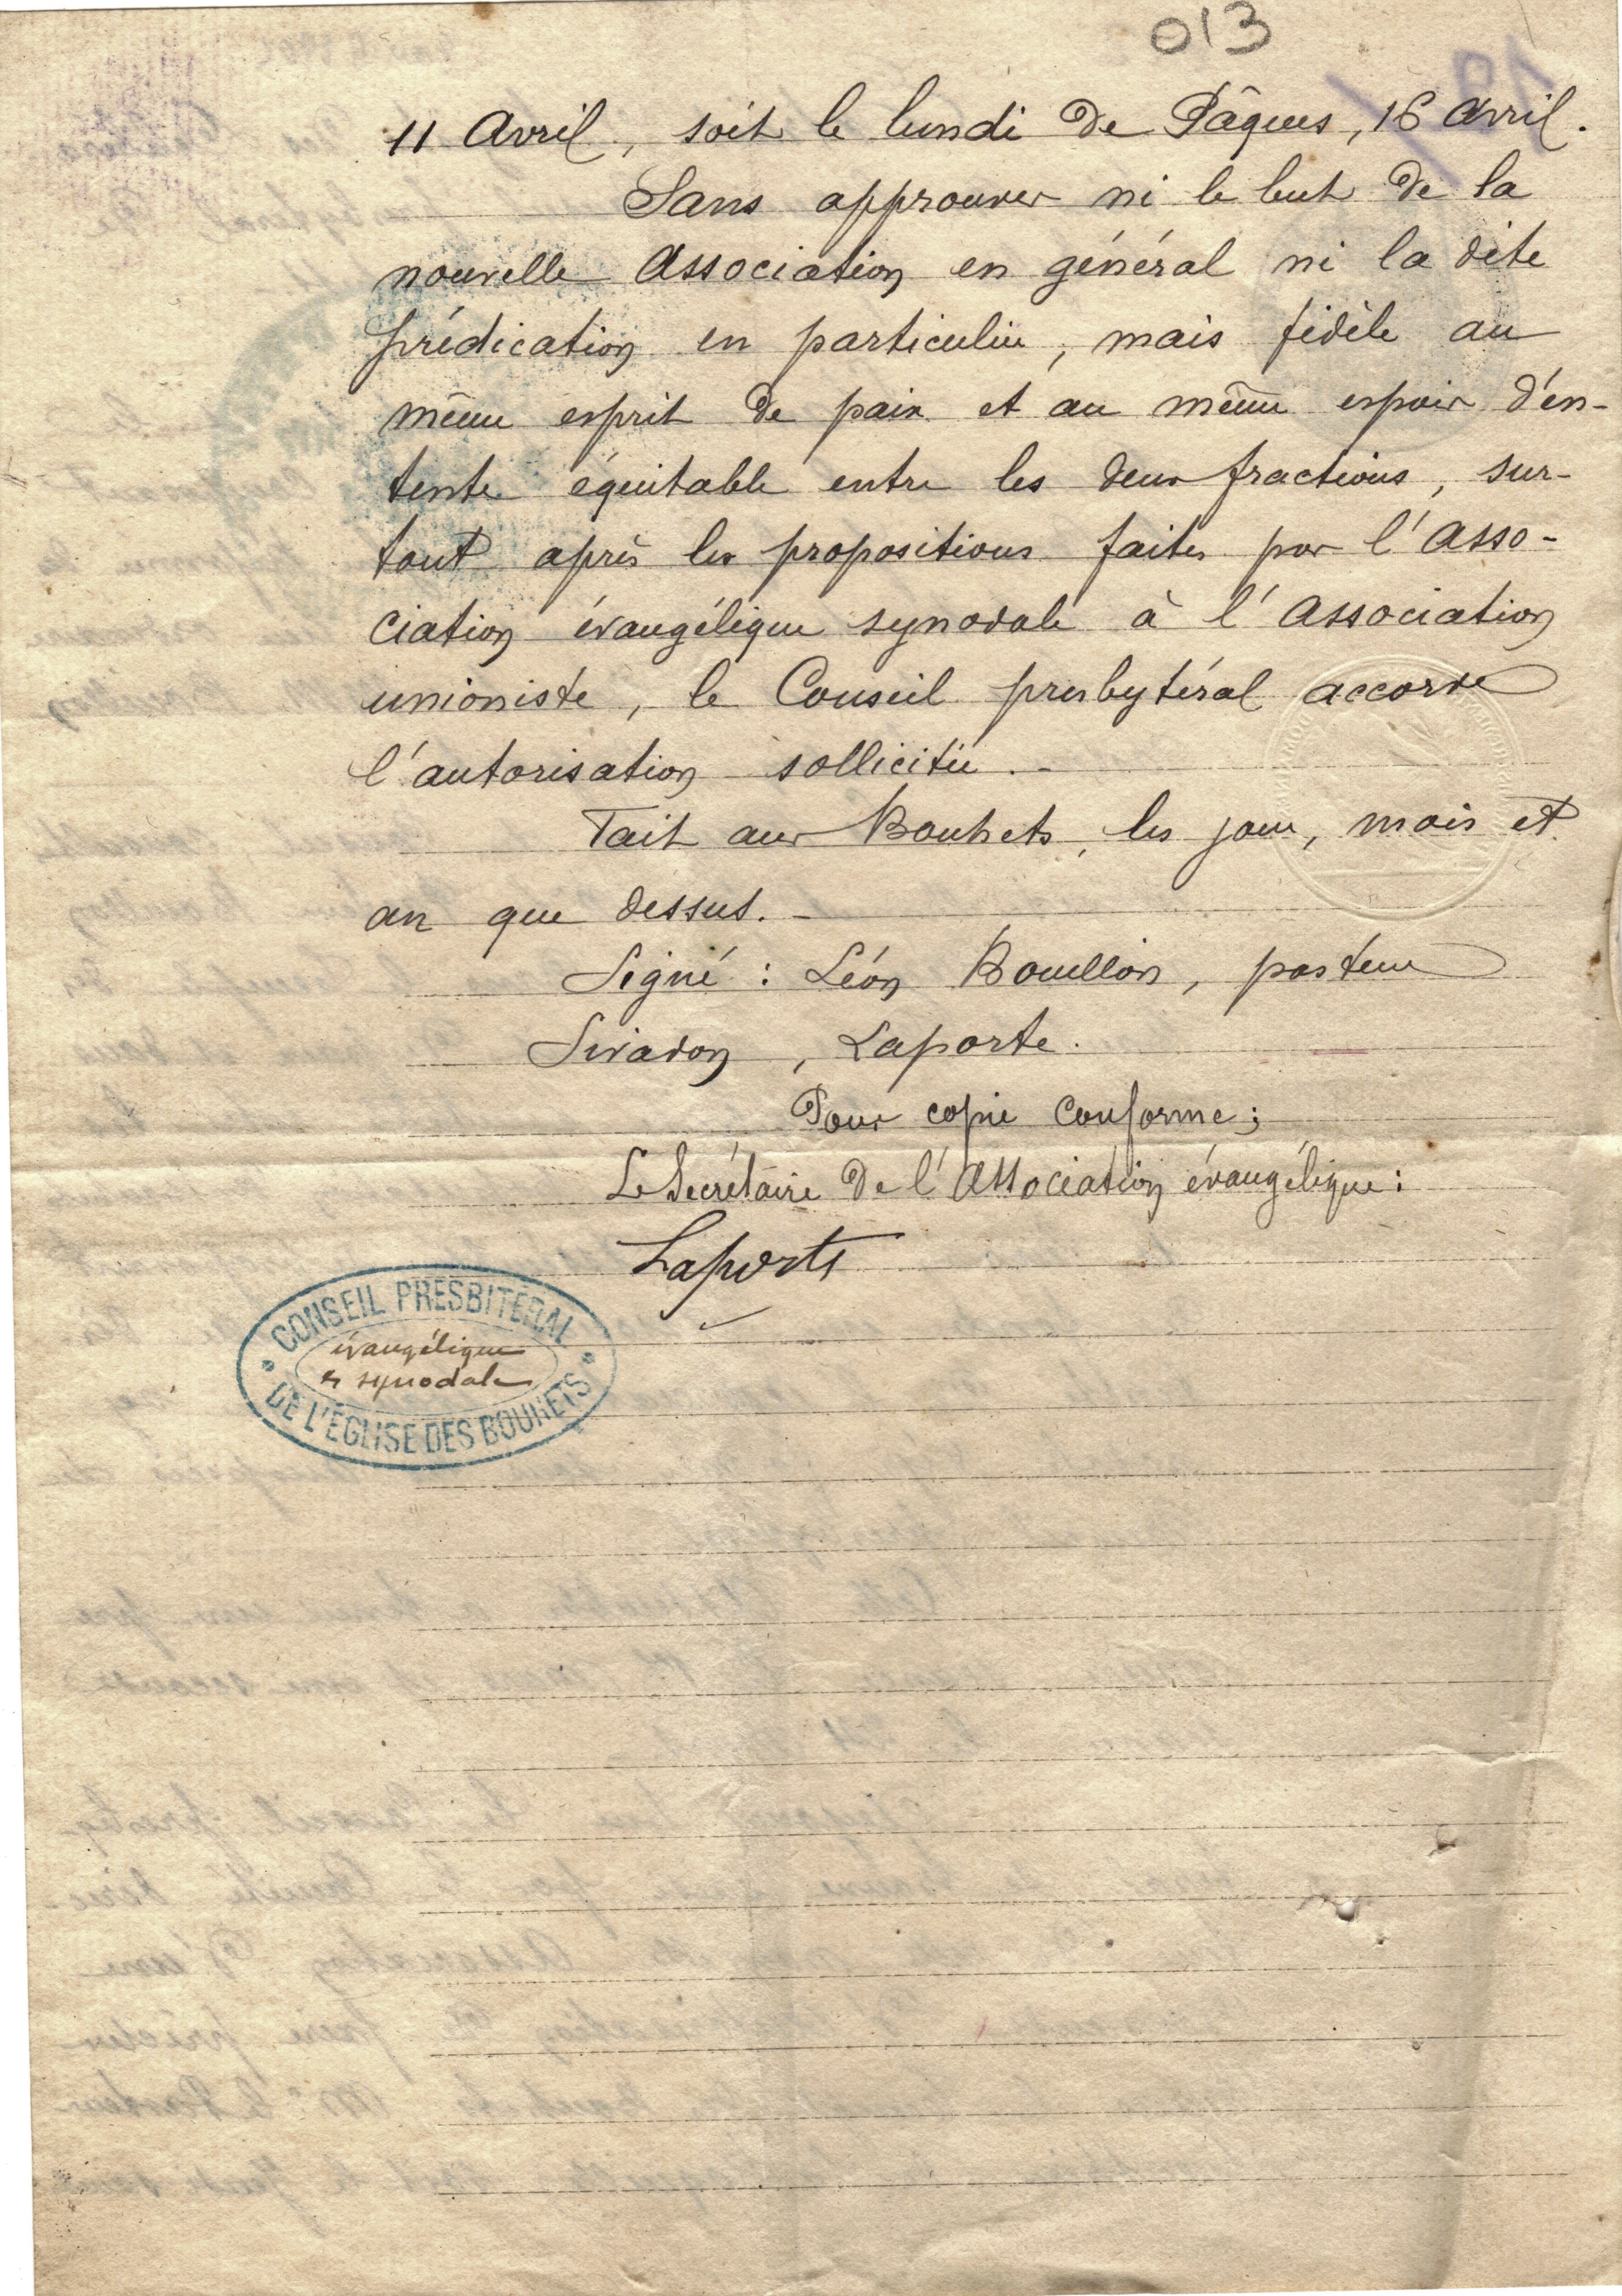 013
11 Avril, soit le lundi de Pâques, 16 Avril.
Sans approuver ni le but de la
nouvelle Association en général ni la dite
prédication en particulier, mais fidèle au
même esprit de paix et au même espoir d'en-
tente équitable entre les deux fractions, sur-
tout après les propositions faites par l'Asso-
ciation évangélique synodale à l'Association
unioniste, le Conseil presbytéral accorde
l'autorisation sollicitée.-
Fait aux Bouhets, les jour, mois et
an que dessus.-
Signé : Léon Bouillon, pasteur
Sivadon, Laporte.
Pour copie conforme;
Le Secrétaire de l'Association évangélique :
Laporte
CONSEIL PRESBITÉRAL
évangélique
& synodale
DE L'ÉGLISE DES BOUHETS